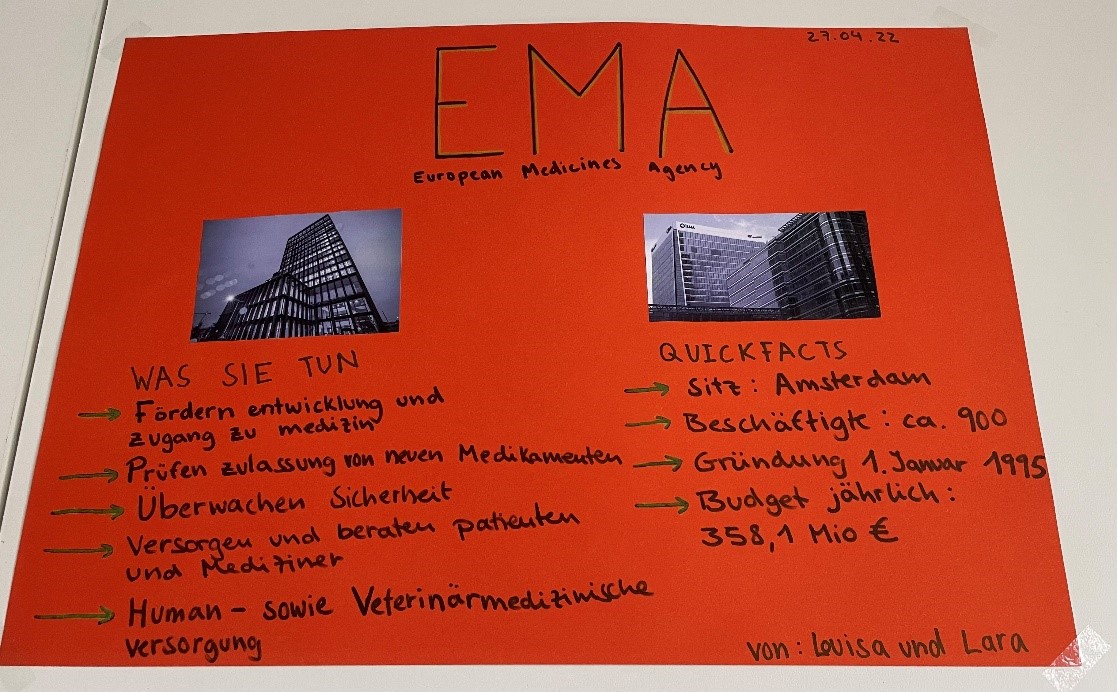 27.04.22
EMA
European Medicines Agency
WAS SIE TUN
→ Fördern entwicklung und
zugang zu medizin
→ Prüfen zulassung von neuen Medikamenten
→ Überwachen Sicherheit
→ Versorgen und beraten patienten
und Mediziner
→ Human- sowie Veterinärmedizinische
versorgung
QUICKFACTS
→ Sitz: Amsterdam
→ Beschäftigte: ca. 900
→ Gründung 1. Januar 1995
→ Budget jährlich:
358,1 Mio €
von: Louisa und Lara